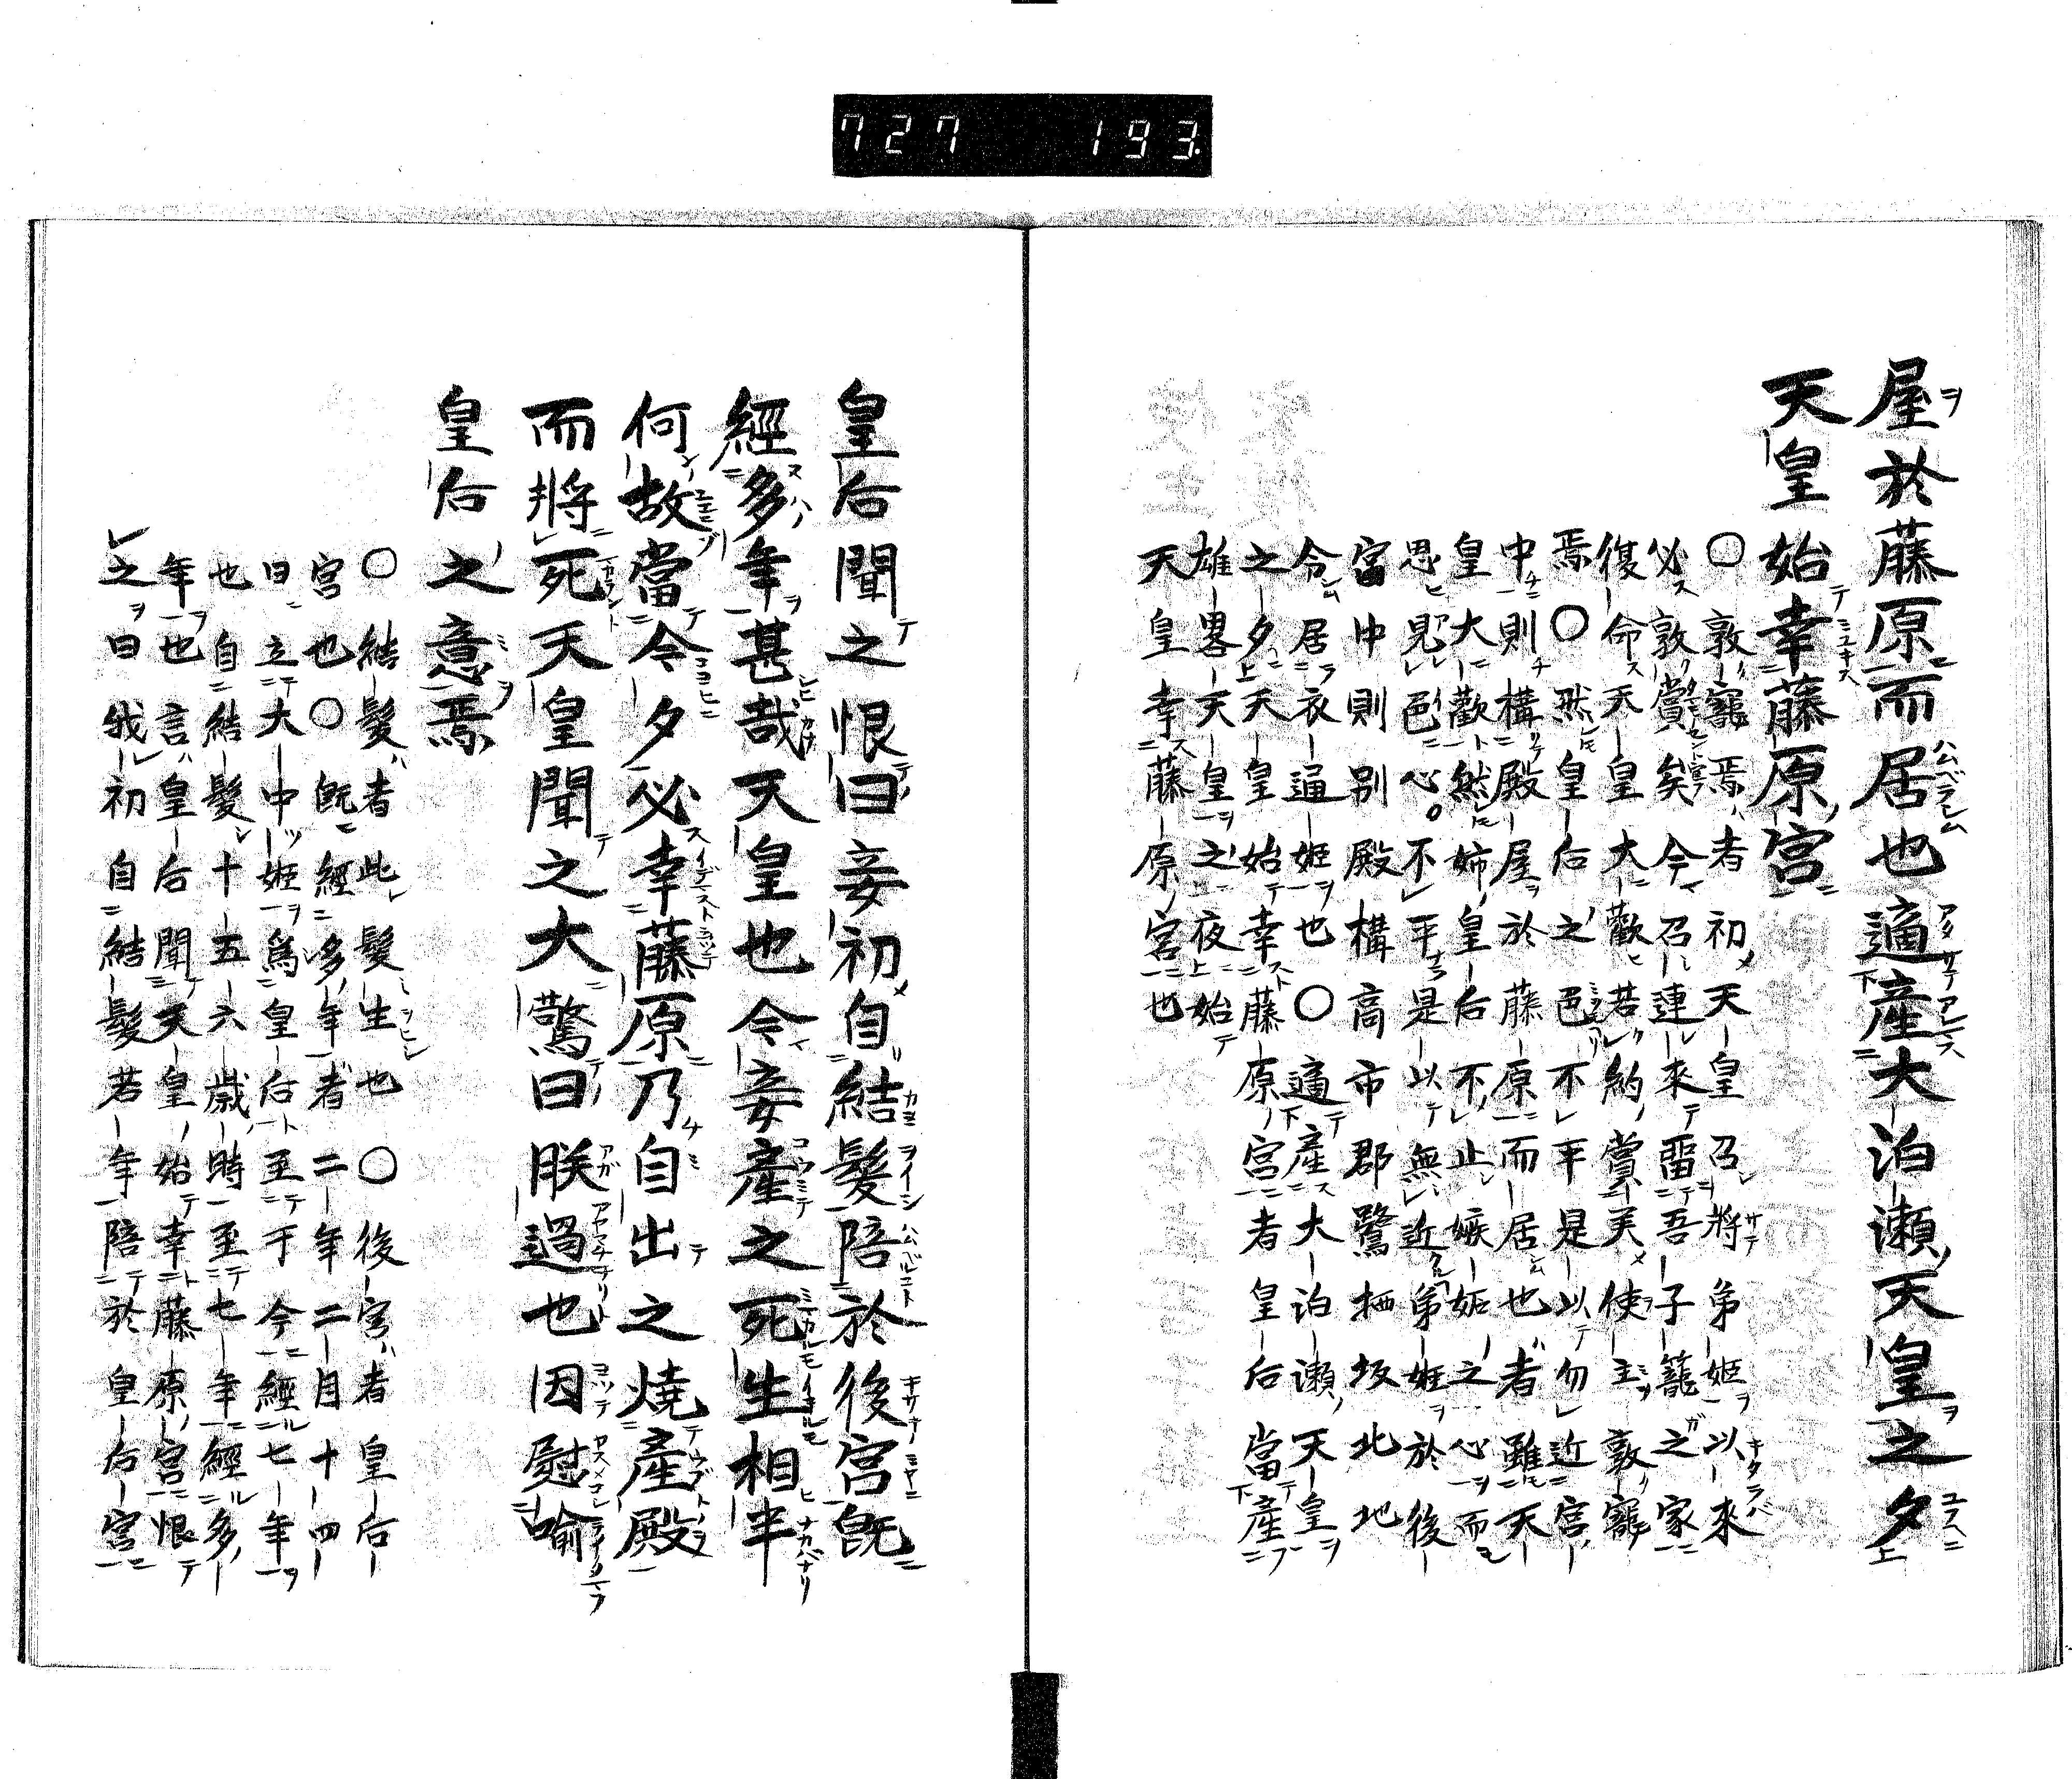 727 193
屋於藤原而居也適産大泊瀬天皇之夕
天皇始幸藤原宮
○敦寵焉者初天皇召将弟姫以来
必敦賞矣今召連来留吾子籠之家
復命天皇大歡若約賞美使主敦寵
焉○然皇后之色不平是以勿近宮
中則構殿屋於藤原而居也者雖天
皇大歡然姉皇后不止嫉妬之心而
思見色心。不平是以無近弟姫於後
宮中則別殿構高市郡鷺栖坂北地
令居衣通姫也○適産大泊瀬天皇
之夕天皇始幸藤原宮者皇后當産
雄畧天皇之夜始
天皇幸藤原宮也
皇后聞之恨曰妾初自結髮陪於後宮既
經多年甚哉天皇也今妾産之死生相半
何故當今夕必幸藤原乃自出之燒産殿
而將死天皇聞之大驚曰朕過也因慰喩
皇后之意焉
○結髮者此髮生也○後宮者皇后
宮也○既經多年者二年二月十四
曰立大中姫爲皇后至于今經七年
也自結髮十五六歳時至七年經多
年也言皇后聞天皇始幸藤原宮恨
之曰我初自結髮若年陪於皇后宮